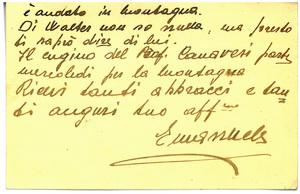 è andato in montagna.
Di Walter non so nulla, ma presto
ti saprò dire di lui.
Il cugino del Rag. Canaveri parte
mercoledì per la montagna
Ricevi tanti abbracci e tan-
ti auguri tuo aff.mo
Emanuele